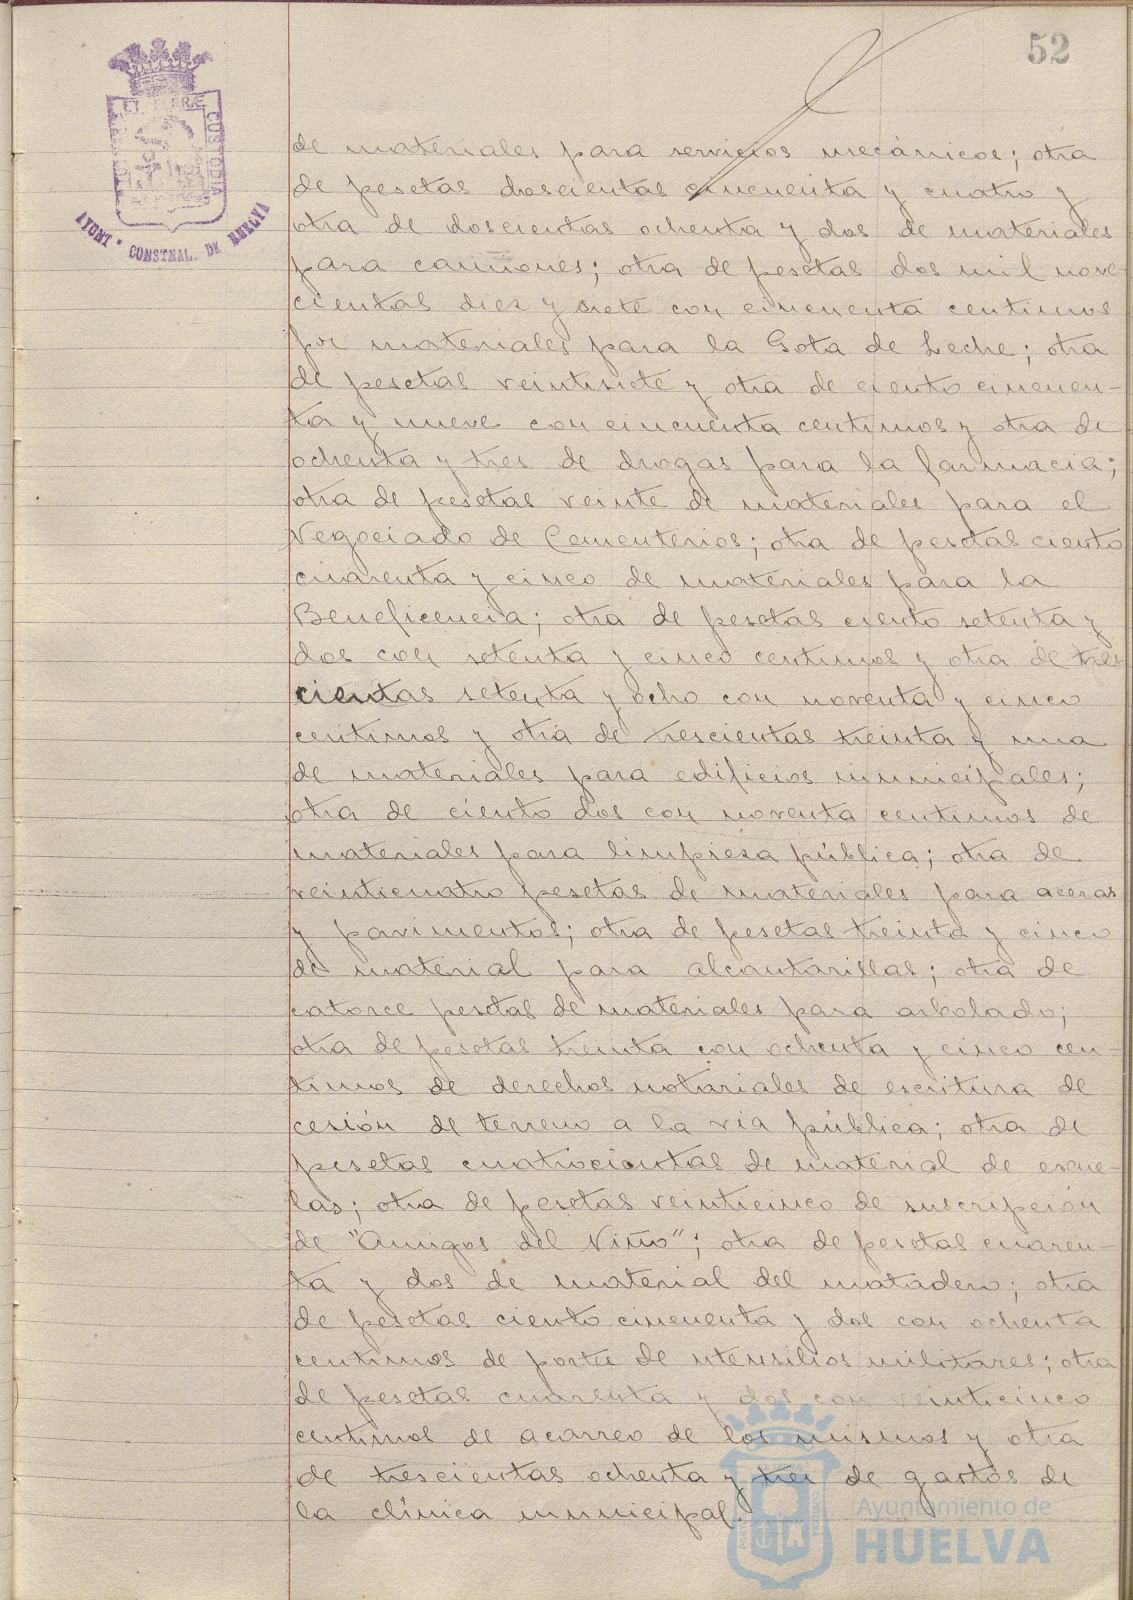 52
ET TERRÆ
CUSTODIA
AYUNT. CONSTNAL. DE HUELVA
de materiales para servicios mecánicos; otra
de pesetas doscientas cincuenta y cuatro y
otra de doscientas ochenta y dos de materiales
para camiones; otra de pesetas dos mil nove-
cientas diez y siete con cincuenta centimos
por materiales para la Gota de Leche; otra
de pesetas veintisiete y otra de ciento cincuen-
ta y nueve con cincuenta centimos y otra de
ochenta y tres de drogas para la farmacia;
otra de pesetas veinte de materiales para el
Negociado de Cementerios; otra de pesetas ciento
cuarenta y cinco de materiales para la
Beneficencia; otra de pesetas ciento setenta y
dos con setenta y cinco centimos y otra de tres-
cientas setenta y ocho con noventa y cinco
centimos y otra de trescientas treinta y una
de materiales para edificios municipales;
otra de ciento dos con noventa centimos de
materiales para limpieza pública; otra de
veinticuatro pesetas de materiales para aceras
y pavimentos; otra de pesetas treinta y cinco
de material para alcantarillas; otra de
catorce pesetas de materiales para arbolado;
otra de pesetas treinta con ochenta y cinco cen-
timos de derechos notariales de escritura de
cesión de terreno a la via pública; otra de
pesetas cuatrocientas de material de escue-
las; otra de pesetas veinticinco de suscripción
de "Amigos del Niño"; otra de pesetas cuaren-
ta y dos de material del matadero; otra
de pesetas ciento cincuenta y dos con ochenta
centimos de porte de utensilios militares; otra
de pesetas cuarenta y dos con veinticinco
centimos de acarreo de los mismos y otra
de trescientas ochenta y tres de gastos de
la clínica municipal.
Ayuntamiento de
HUELVA